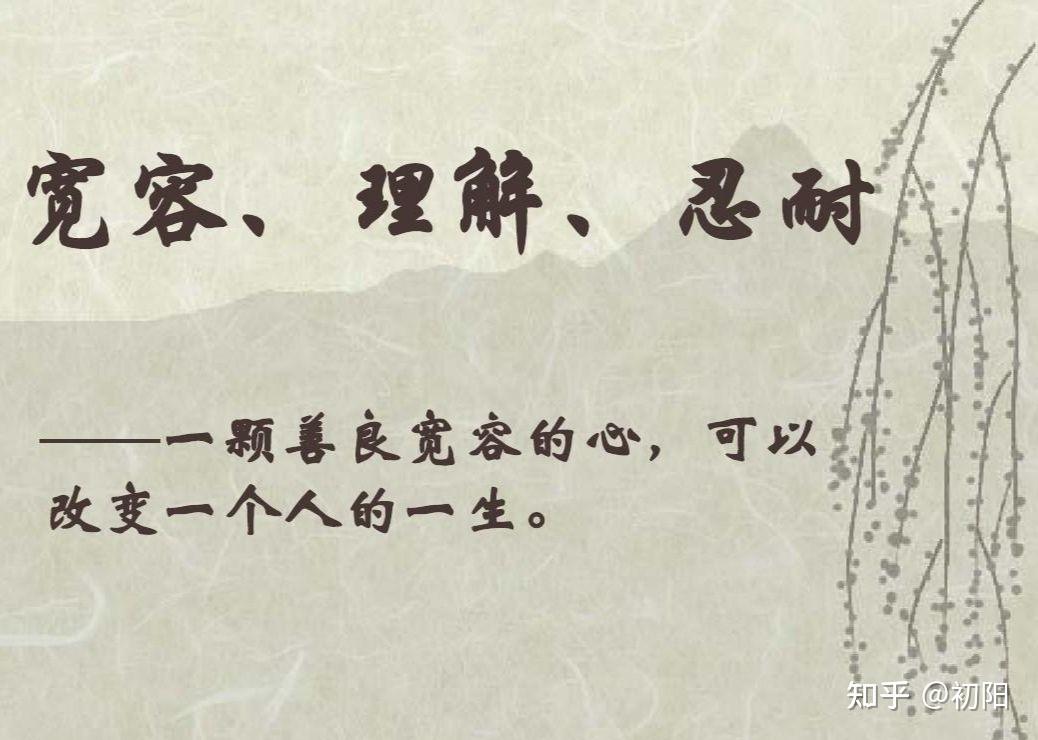 宽容、理解、忍耐
———一颗善良宽容的心，可以
改变一个人的一生。
知乎 @初阳